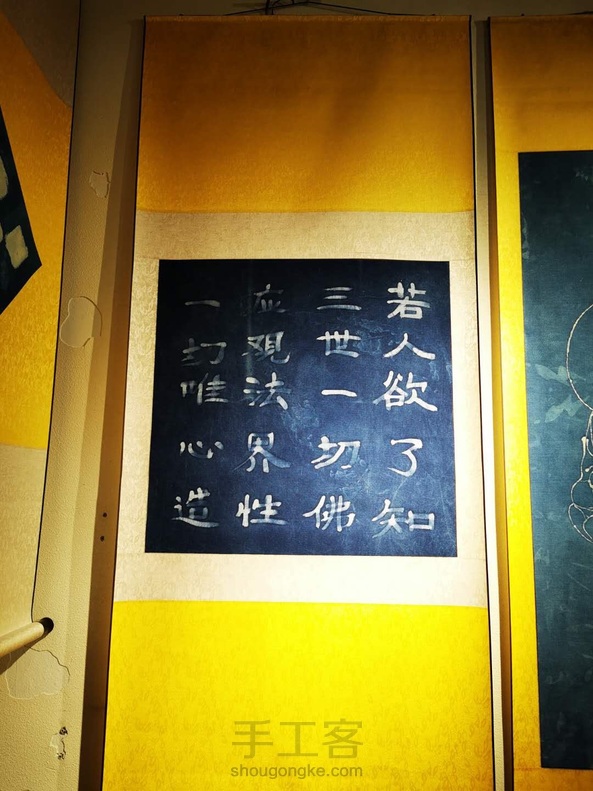 若人欲了知
三世一切佛
应观法界性
一切唯心造
手工客
shougongke.com